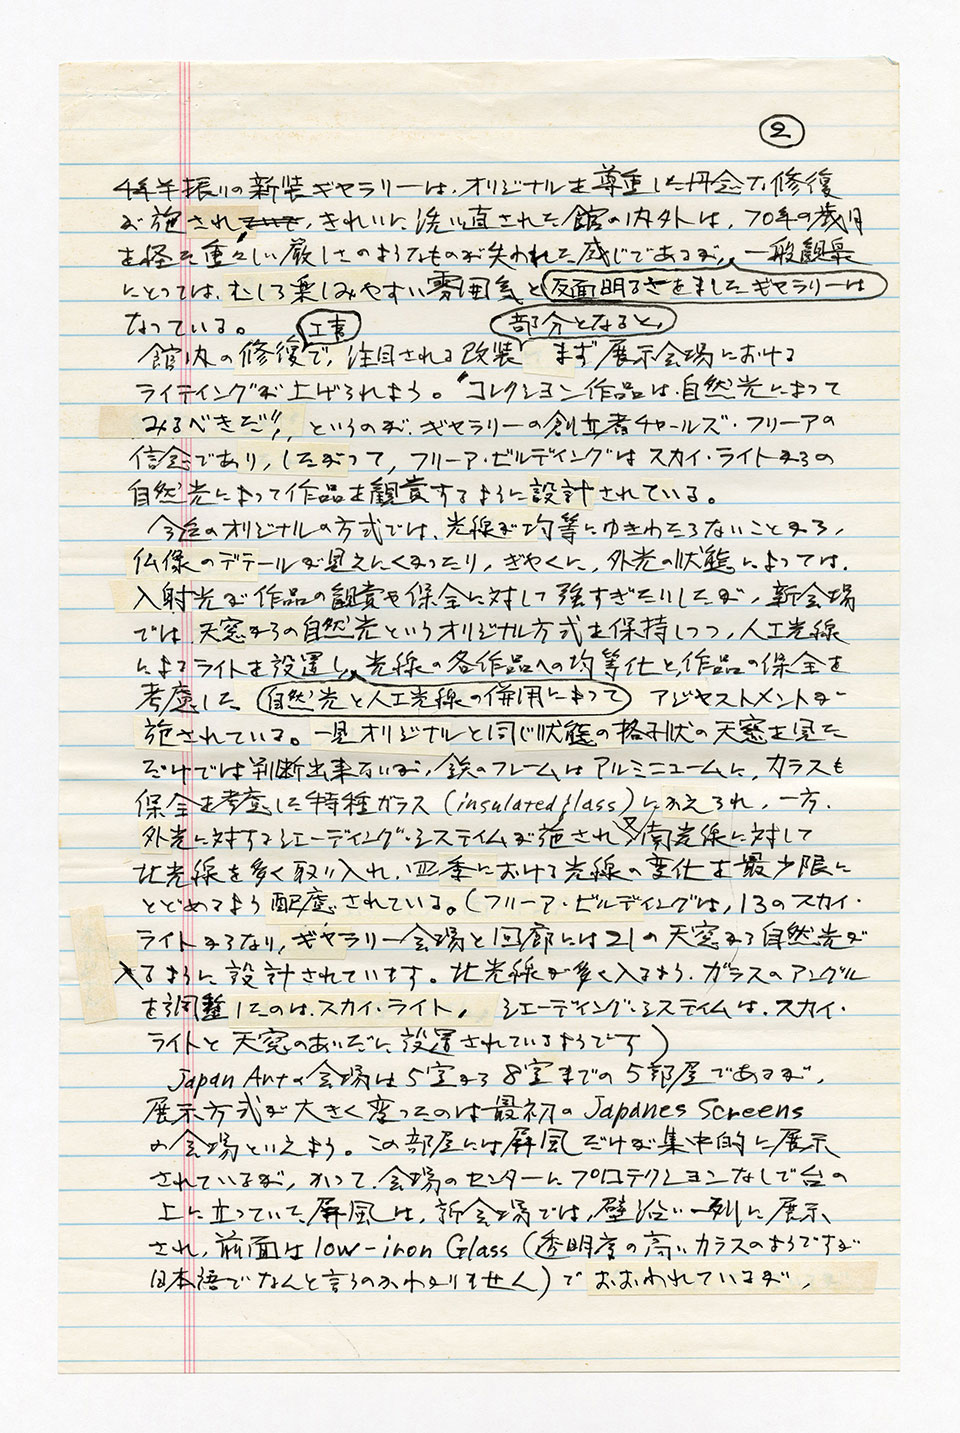 2
4年半振りの新装ギャラリーは、オリジナルを尊重した丹念な修復
が施され、きれいに洗い直された館の内外は、70年の歳月
を経た重々しい厳しさのようなものが失われた感じであるが、一般観衆
にとっては、むしろ楽しみやすい雰囲気と反面明るさをましたギャラリーは
なっている。 工事 部分となると、
館内の修復で、注目される改装 まず展示会場における
ライティングが上げられよう。“コレクション作品は、自然光によって
みるべきだ”、というのが、ギャラリーの創立者チャールズ・フリーアの
信念であり、したがって、フリーア・ビルディングはスカイ・ライトからの
自然光によって作品を観賞するように設計されている。
今迄のオリジナルの方式では、光線が均等にゆきわたらないことから、
仏像のデテールが見えにくかったり、ぎやくに、外光の状態によっては、
入射光が作品の観賞や保全に対して強すぎたりしたが、新会場
では、天窓からの自然光というオリジナル方式を保持しつつ、人工光線
によるライトを設置し、光線の各作品への均等化と、作品の保全を
考慮した 自然光と人工光線の併用によって アジャストメントが
施されている。一見オリジナルと同じ状態の格子状の天窓を見た
だけでは判断出来ないが、鉄のフレームはアルミニュームに、ガラスも
保全を考慮した特種ガラス（insulated glass）にかえられ、一方、
外光に対するシェーディング・システイムが施され、又南光線に対して
北光線を多く取り入れ、四季における光線の変化を最少限に
とどめるよう配慮されている。（フリーア・ビルディングは、13のスカイ・
ライトからなり、ギャラリー会場と回廊には21の天窓から自然光が
入るように設計されています。北光線が多く入るよう、ガラスのアングル
を調整したのは、スカイ・ライト、 シェーディング・システイムは、スカイ・
ライトと天窓のあいだに設置されているようです）
Japan Artの会場は5室から8室までの5部屋であるが、
展示方式が大きく変ったのは最初のJapanes Screens
の会場といえよう。この部屋には屏風だけが集中的に展示
されているが、かつて、会場のセンターにプロテクションなしで台の
上に立っていた屏風は、新会場では、壁沿い一列に展示
され、前面はlow-iron Glass（透明度の高いガラスのようですが
日本語でなんと言うのかわかりません）でおおわれているが、